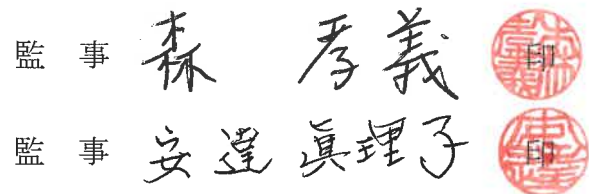 監事 森 孝義 印
監事 安達 眞理子 印